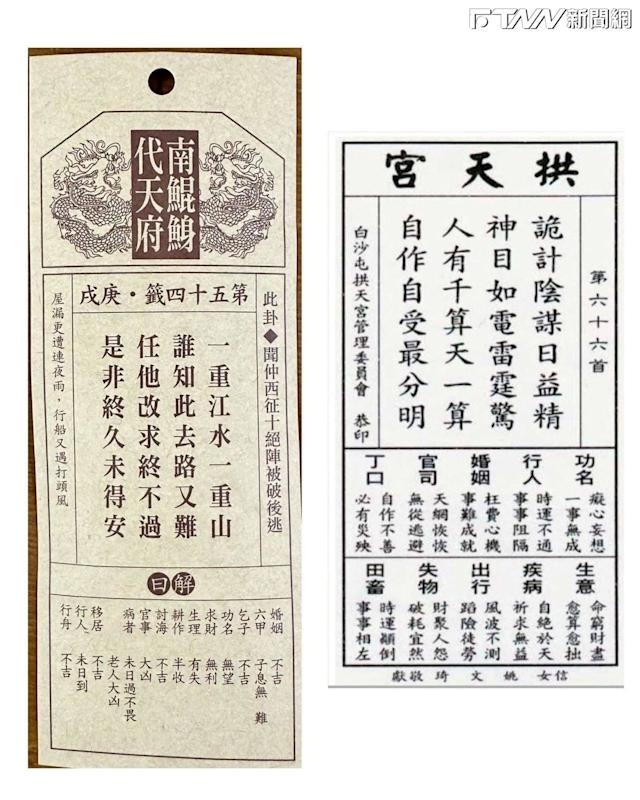 FTNN新聞網
南鯤鯓
代天府
第五十四籤・庚戌
此卦◆聞仲西征十絕陣被破後逃
一重江水一重山
誰知此去路又難
任他改求終不過
是非終久未得安
屋漏更遭連夜雨，行船又遇打頭風
解曰
婚姻 不吉
六甲 子息無難
乞子 不吉
功名 無望
求財 無利
生理 有失
耕作 半收
討海 不吉
官事 大凶
病者 未日過不畏
老人大凶
移居 不吉
行人 未日到
行舟 不吉
拱天宮
第六十六首
詭計陰謀日益精
神目如電雷霆驚
人有千算天一算
自作自受最分明
白沙屯拱天宮管理委員會 恭印
功名 癡心妄想
一事無成
行人 時運不通
事事阻隔
婚姻 枉費心機
事難成就
官司 天網恢恢
無從逃避
丁口 自作不善
必有災殃
生意 命窮財盡
愈算愈拙
疾病 自絕於天
祈求無益
出行 風波不測
蹈險徒勞
失物 財聚人怨
破耗宜然
田畜 時運顛倒
事事相左
信女 姚文琦 敬獻